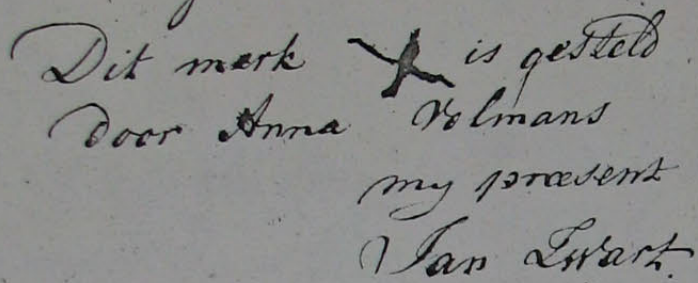 Dit merk X is gesteld
door Anna Volmans
my præsent
Jan Zwart.